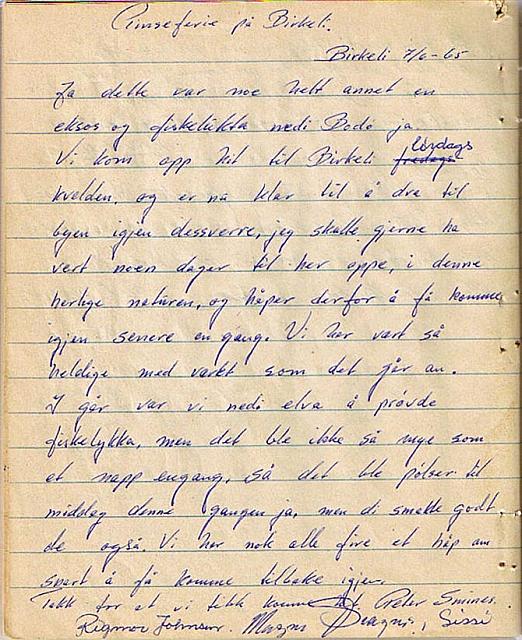 Pinseferie på Birkeli.
Birkeli 7/6-65
Ja dette var noe helt annet en
eksos og fiskelukta nedi Bodø ja
Vi kom opp hit til Birkeli fredags lördags
kvelden. og er nå klar til å dra til
byen igjen dessverre, jeg skulle gjerne ha
vert noen dager til her oppe, i denne
herlige naturen, og håper derfor å få komme
igjen senere en gang. Vi har vært så
heldige med været som det går an.
I går var vi nedi elva å prøvde
fiskelykka, men det ble ikke så mye som
et napp engang, så det ble pølser til
middag denne gangen ja, men di smakte godt
de også. Vi har nok alle fire et håp om
snart å få komme tilbake igjen.
Takk for at vi fikk komme hit
Rigmor Johnsen. Magni Sissi